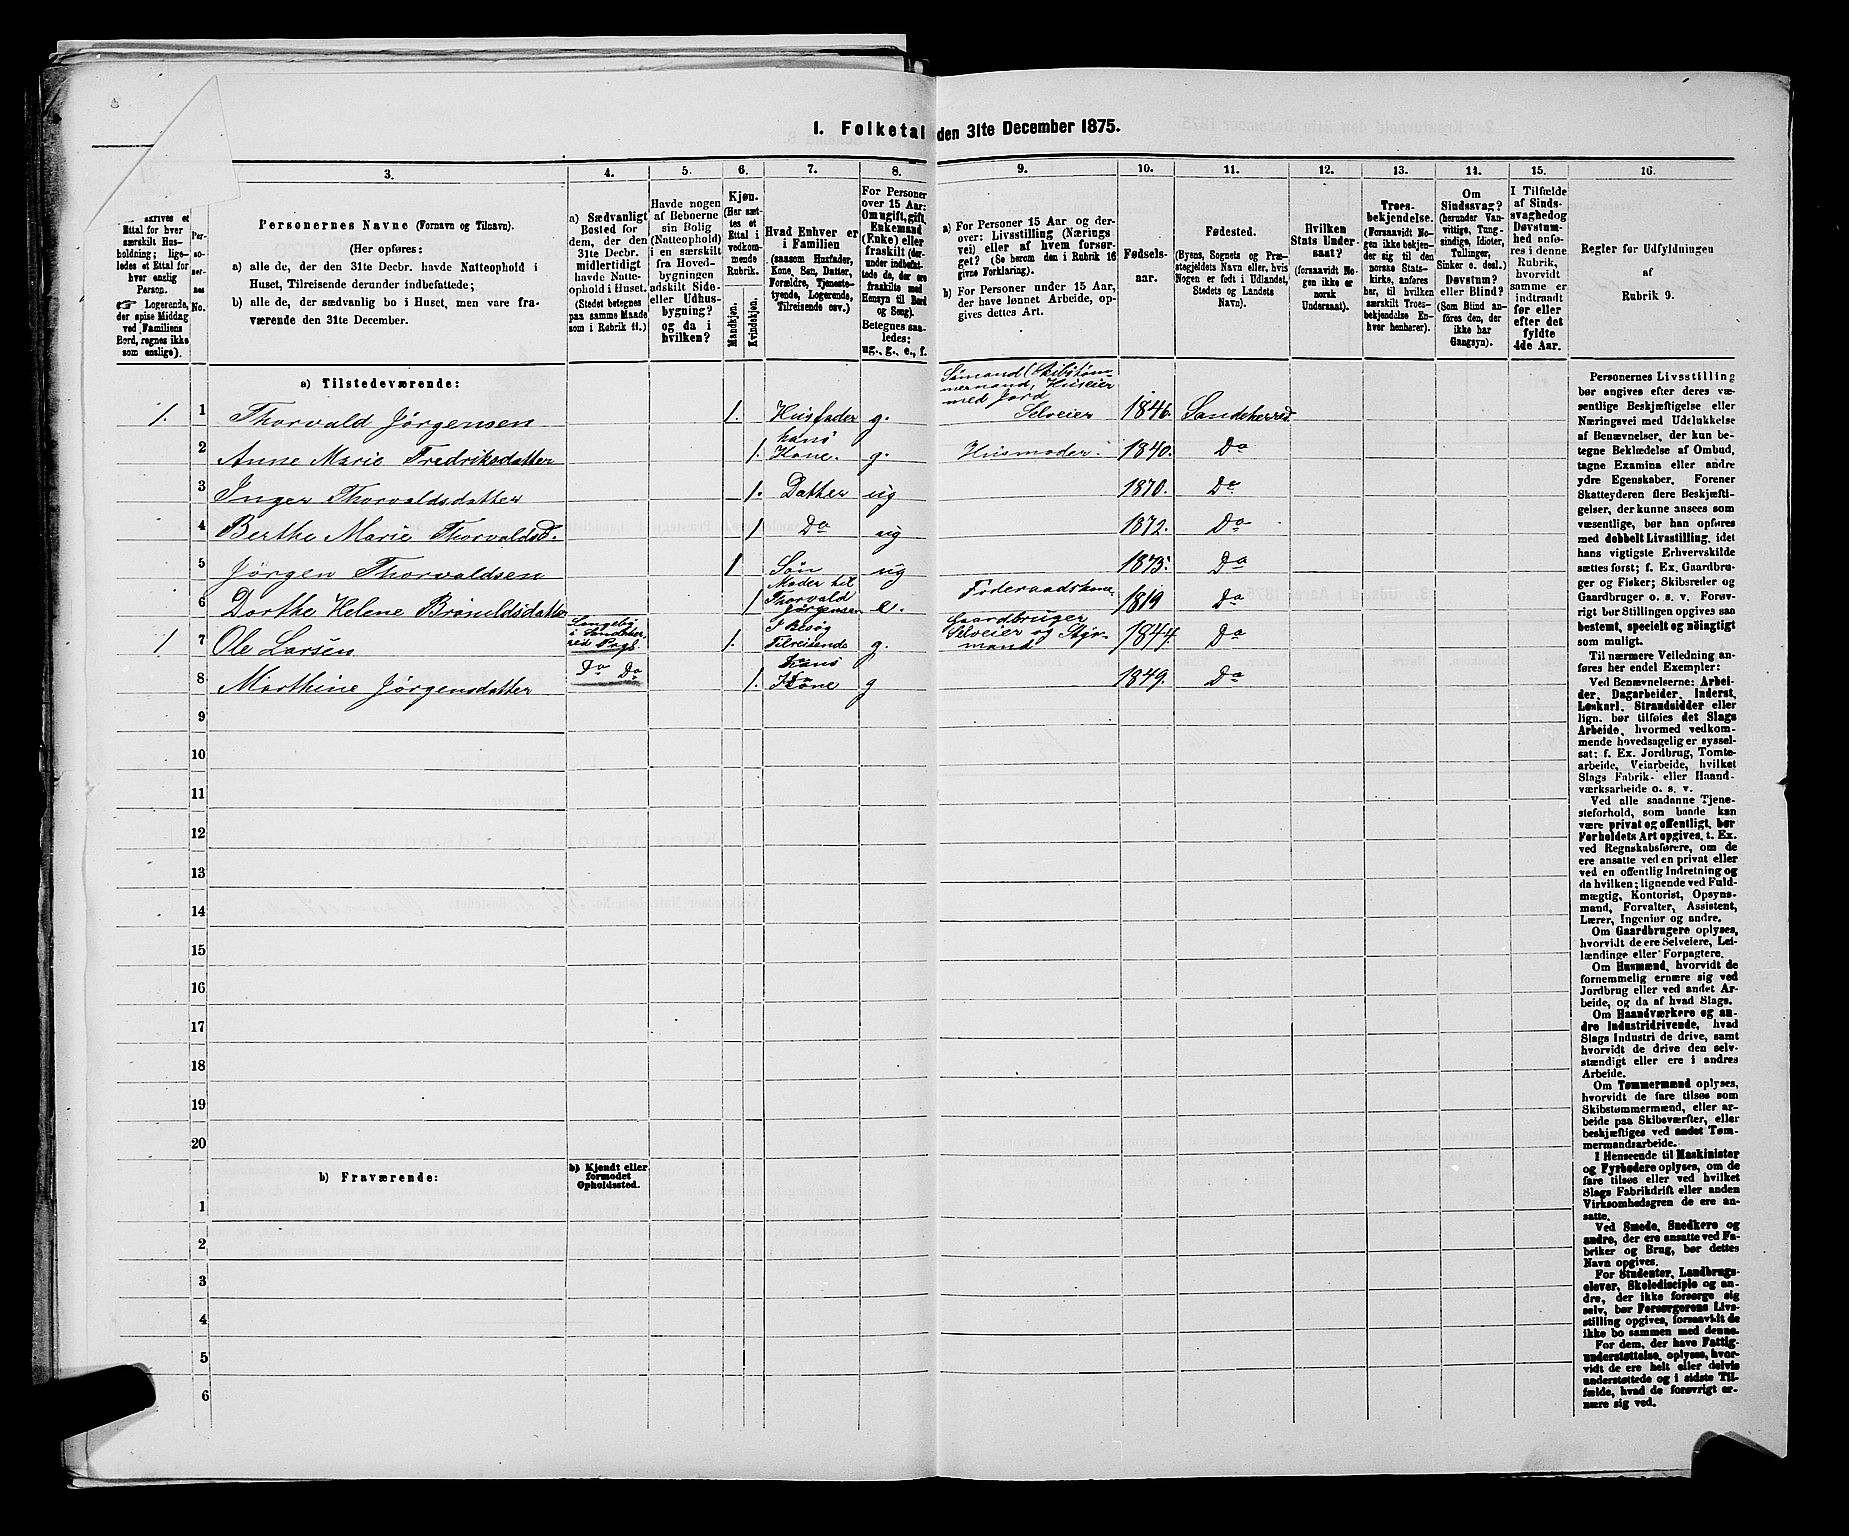 I. Folketal den 31te December 1875.
3.
4.
5.
6.
7.
8.
9.
10.
11.
12.
13.
14.
15.
16.
skrives et
Ettal for hver
særskilt Hus-
holdning; lige-
ledes et Ettal for
hver enslig
Person.
☞ Logerende,
der spise Middag
ved Familiens
Bord, regnes ikke
som enslige).
Per-
so-
ner-
nes
No.
Personernes Navne (Fornavn og Tilnavn).
(Her opføres:
a) alle de, der den 31te Decbr. havde Natteophold i
Huset, Tilreisende derunder indbefattede;
b) alle de, der sædvanlig bo i Huset, men vare fra-
værende den 31te December.
a) Sædvanligt
Bosted for
dem, der den
31te Decbr.
midlertidigt
havde Natte-
ophold i Huset.
(Stedet betegnes
paa samme Maade
som i Rubrik 11.)
Havde nogen
af Beboerne
sin Bolig
(Natteophold)
i en særskilt
fra Hoved-
bygningen
adskilt Side-
eller Udhus-
bygning?
og da i
hvilken?
Kjøn.
(Her sæt-
tes et
Ettal i
vedkom-
mende
Rubrik.
Mandkjøn.
Kvindekjøn.
Hvad Enhver er
i Familien
(saasom Husfader,
Kone, Søn, Datter,
Forældre, Tjeneste-
tyende, Logerende,
Tilreisende osv.)
For Personer
over 15 Aar:
Om ugift, gift,
Enkemand
(Enke) eller
fraskilt (der-
under indbefat-
tede de, der ere
fraskilte med
Hensyn til Bord
og Seng).
Betegnes saa-
ledes:
ug., g., e., f.
a) For Personer 15 Aar og der-
over: Livsstilling (Nærings
vei) eller af hvem forsør-
get? (Se herom den i Rubrik 16
givne Forklaring).
b) For Personer under 15 Aar,
der have lønnet Arbeide, op-
gives dettes Art.
Fødsels-
aar.
Fødested.
(Byens, Sognets og Præ-
stegjeldets Navn eller, hvis
Nogen er født i Udlandet,
Stedets og Landets
Navn).
Hvilken
Stats Under-
saat?
(forsaavidt No-
gen ikke er
norsk
Undersaat).
Troes-
bekjendelse.
(Forsaavidt No-
gen ikke bekjen-
der sig til den
norske Stats-
kirke, anføres
her, til hvilken
særskilt Troes-
bekjendelse En-
hver henhører).
Om
Sindssvag?
(herunder Van-
vittige, Tung-
sindige, Idioter,
Tullinger,
Sinker o. desl.)
Døvstum?
eller Blind?
(Som Blind an-
føres den, der
ikke har
Gangsyn).
I Tilfælde
af Sinds-
svaghed og
Døvstum-
hed anfø-
res i denne
Rubrik,
hvorvidt
samme er
indtraadt
før eller
efter det
fyldte
4de Aar.
Regler før Udfyldningen
af
Rubrik 9.
a) Tilstedeværende:
1. 1 Thorvald Jørgensen 1. Husfader g. Sømand (Skibstøm-
mermand, Huseier
med Jord
Selveier 1846. Sandeherred
2 Anne Marie Fredriksdatter 1. hans
Kone. g. Husmoder. 1840. Do
3 Inger Thorvaldsdatter 1. Datter ug 1870. Do
4 Berthe Marie Thorvaldsd. 1 Do ug 1872. Do
5 Jørgen Thorvaldsen 1 Søn ug 1875. Do
6 Dorthe Helene 1 Moder til
Thorvald
Jørgensen e. Føderaadskone 1819 Do
1 7 Ole Larsen
i Sandeher-
red Prgl. 1. I Besøg
Tilreisende g. Gaardbruger
Selveier og Styr-
mand 1844 Do
8 Marthine Jørgensdatter Do Do 1. hans
Kone g 1849. Do
9
10
11
12
13
14
15
16
17
18
19
20
b) Fraværende:
b) Kjendt eller
formodet
Opholdssted.
1
2
3
4
5
6
Personernes Livsstilling
bør angives efter deres væ-
sentlige Beskjæftigelse eller
Næringsvei med Udelukkelse
af Benævnelser, der kun be-
tegne Beklædelse af Ombud,
tagne Examina eller andre
ydre Egenskaber. Forener
Skatteyderen flere Beskjæfti-
gelser, der kunne ansees som
væsentlige, bør han opføres
med dobbelt Livsstilling, idet
hans vigtigste Erhvervskilde
sættes først; f. Ex. Gaardbru-
ger og Fisker; Skibsreder og
Gaardbruger o. s. v. Forøv-
rigt bør Stillingen opgives saa
bestemt, specielt og nøiagtigt
som muligt.
Til nærmere Veiledning an-
føres her endel Exempler:
Ved Benævnelserne: Arbei-
der, Dagarbeider, Inderst,
Løskarl, Strandsidder eller
lign. bør tilføies det Slags
Arbeide, hvormed vedkom-
mende hovedsagelig er syssel-
sat: f. Ex. Jordbrug, Tomte-
arbeide, Veiarbeide, hvilket
Slags Fabrik- eller Haand-
værksarbeide o. s. v.
Ved alle saadanne Tjene-
steforhold, som baade kan
være privat og offentligt, bør
Forholdets Art opgives, t. Ex.
ved Regnskabsførere, om de
ere ansatte ved en privat eller
ved en offentlig Indretning og
da hvilken; lignende ved Fuld-
mægtig, Kontorist, Opsyns-
mand, Forvalter, Assistent,
Lærer, Ingeniør og andre.
Om Gaardbrugere oplyses,
hvorvidt de ere Selveiere, Lei-
lændinge eller Forpagtere.
Om Husmænd, hvorvidt de
fornemmelig ernære sig ved
Jordbrug eller ved andet Ar-
beide, og da af hvad Slags.
Om Haandværkere og an-
dre Industridrivende, hvad
Slags Industri de drive, samt
hvorvidt de drive den selv-
stændigt eller ere i andres
Arbeide.
Om Tømmermænd oplyses,
hvorvidt de fare tilsøs som
Skibstømmermænd, eller ar-
beide paa Skibsværfter, eller
beskjæftiges ved andet Tøm-
mermandsarbeide.
I Henseende til Maskinister
og Fyrbødere oplyses, om de
fare tilsøs eller ved hvilket
Slags Fabrikdrift eller anden
Virksomhedsgren de ere an-
satte.
Ved Smede, Snedkere og
andre, der ere ansatte ved Fa-
briker og Brug, bør dettes
Navn opgives.
For Studenter, Landbrugs-
elever, Skoledisciple og an-
dre, der ikke forsørge sig
selv, bør Forsørgerens Livs-
stilling opgives, forsaavidt de
ikke bo sammen med denne.
For dem, der have Fattig-
understøttelse, oplyses, hvor-
vidt de ere helt eller delvis
understøttede og i sidste Til-
fælde, hvad de forøvrigt er-
nære sig ved.